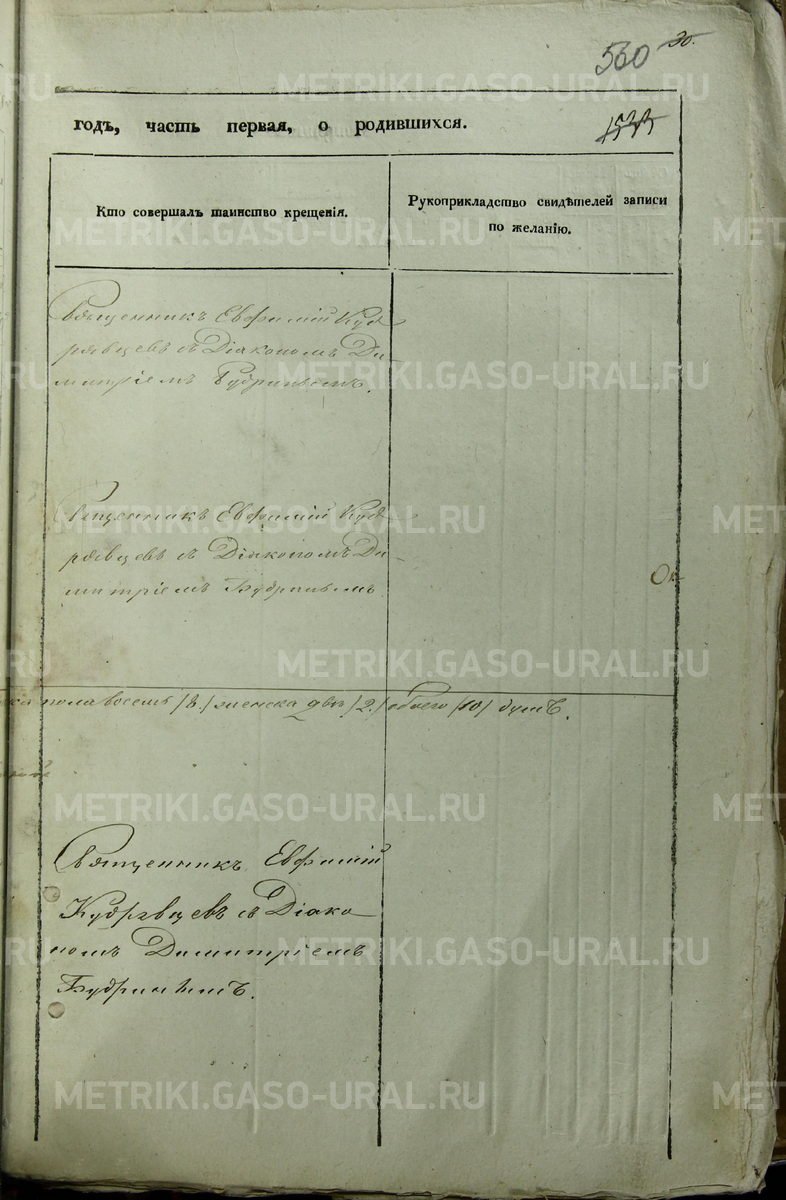 560 30.
годъ, часть первая, о родившихся.
Кто совершалъ таинство крещенія.
Рукоприкладство свидѣтелей записи
по желанію.
Священникъ Евфимій Куд-
рявцевъ съ Діакономъ Ди-
митріемъ Будринымъ.
Священникъ Евфимій Куд-
рявцевъ съ Діакономъ Ди-
митріемъ Будринымъ
Ок
пола восемь /8./ женска двѣ /2./ обоего /10/ душъ.
Священникъ Евфимій
Кудрявцевъ съ Діако-
номъ Димитріемъ
Будринымъ.
METRIKI.GASO-URAL.RU